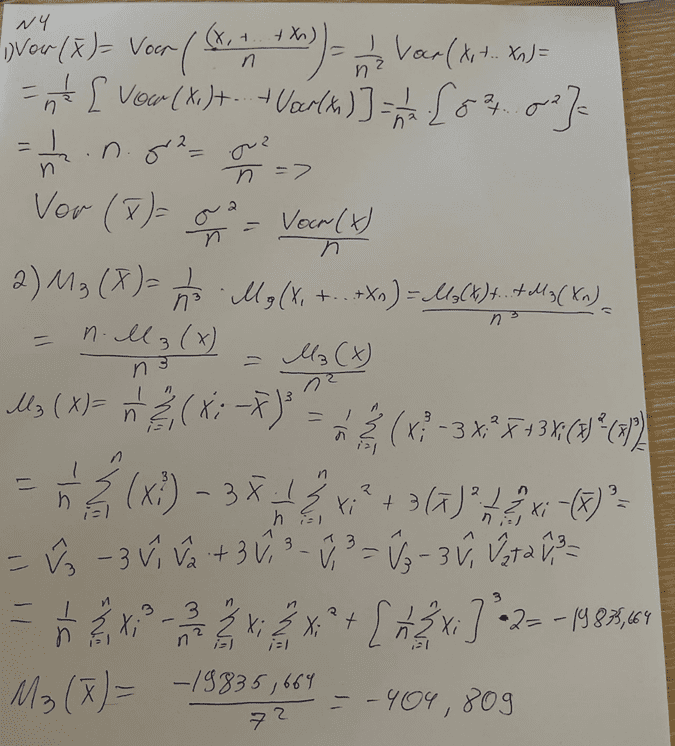 N4
1) Var(x̄) = Var((x₁ + ... + xₙ)/n) = 1/n² Var(x₁+.. xₙ) =
= 1/n² [Var(x₁)+...+Var(xₙ)] = 1/n² · [σ²+.. σ²] =
= 1/n² · n · σ² = σ²/n =>
Var(x̄) = σ²/n = Var(x)/n
2) M₃(x̄) = 1/n³ · M₃(x₁ + ... + xₙ) = (M₃(x₁)+..+M₃(xₙ))/n³ =
= n·M₃(x)/n³ = M₃(x)/n²
M₃(x) = 1/n Σⁿᵢ₌₁ (xᵢ - x̄)³ = 1/n Σⁿᵢ₌₁ (xᵢ³ - 3xᵢ² x̄ + 3xᵢ(x̄)² - (x̄)³) =
= 1/n Σⁿᵢ₌₁ (xᵢ³) - 3x̄ · 1/n Σⁿᵢ₌₁ xᵢ² + 3(x̄)² · 1/n Σⁿᵢ₌₁ xᵢ - (x̄)³ =
= V̂₃ - 3V̂₁ V̂₂ + 3V̂₁³ - V̂₁³ = V̂₃ - 3V̂₁ V̂₂ + 2V̂₁³ =
= 1/n Σⁿᵢ₌₁ xᵢ³ - 3/n² Σⁿᵢ₌₁ xᵢ Σⁿᵢ₌₁ xᵢ² + [1/n Σⁿᵢ₌₁ xᵢ]³ · 2 = -19835,664
M₃(x̄) = -19835,664/7² = -404,809